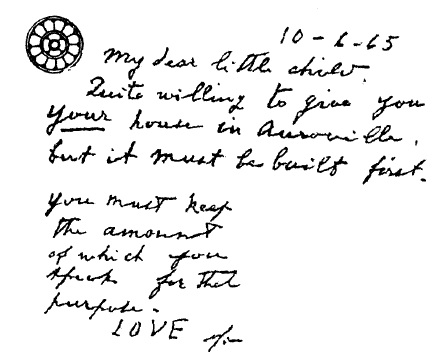 10-6-65
My dear little child,
Quite willing to give you
your house in Auroville,
but it must be built first.
You must keep
the amount
of which you
speak for that
purpose.
LOVE